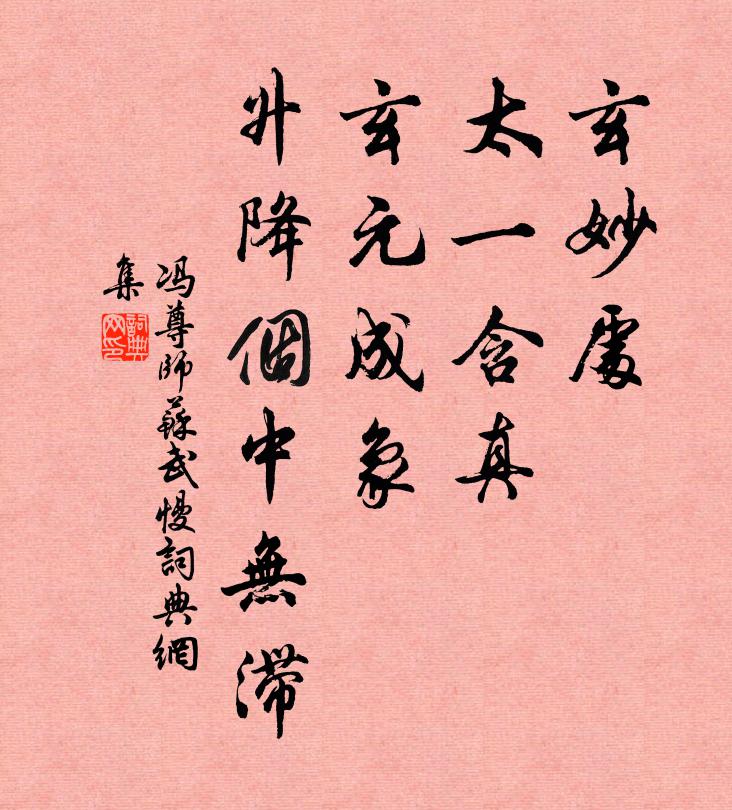 玄妙處
太一含真
玄元成象
升降個中無滯
冯尊師蘇武慢詞典網
集
詞典
网印